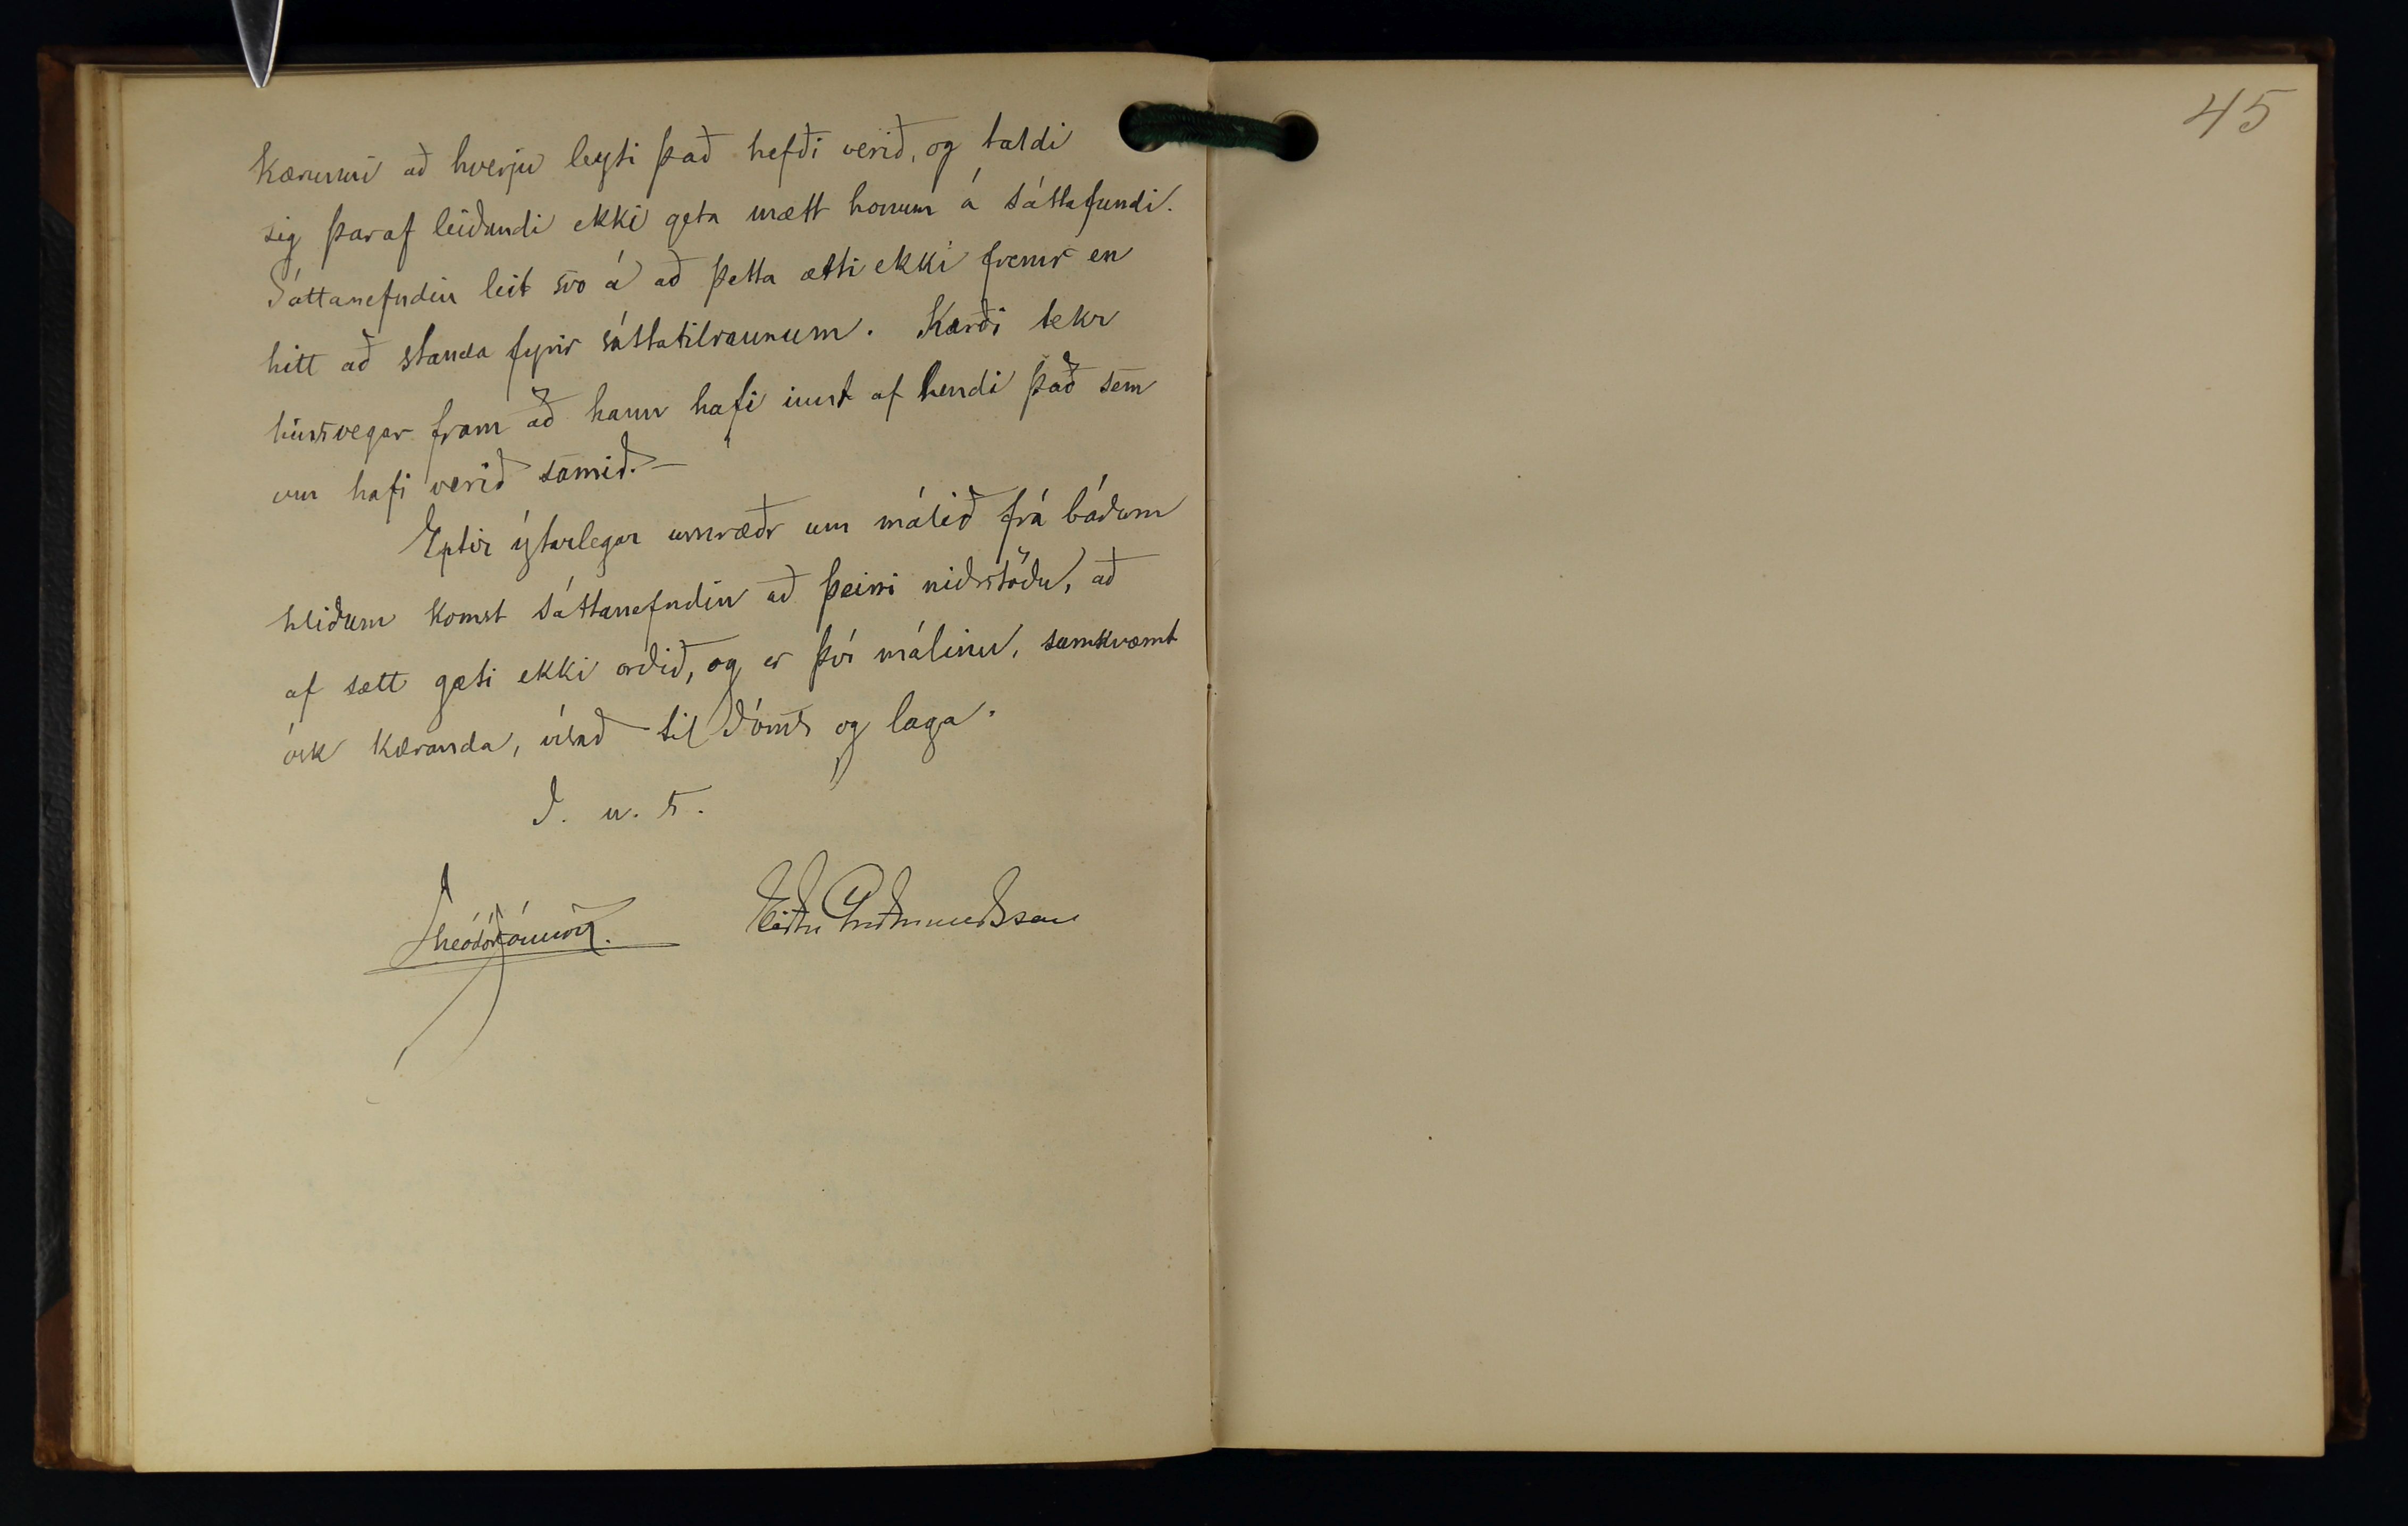 kærunni að hverju leyti það hefði verið, og taldi
sig þar af leiðandi ekki geta mætt honum á sáttafundi.
Sáttanefndin leit svo á að þetta ætti ekki fremr en
hitt að standa fyrir sáttatilraunum. Kærði tekr
hinsvegar fram að hann hafi innt af hendi það sem
um hafi verið samið. —
Eptir ýtarlegar umræðr um málið frá báðum
hliðum komst sáttanefndin að þeirri niðrstöðu, að
af sætt gæti ekki orðið, og er því málinu, samkvæmt
ósk kæranda, vísað til dóms og laga.
D. u. s.
Theódór Jónsson. Eiðr Guðmundsson
45